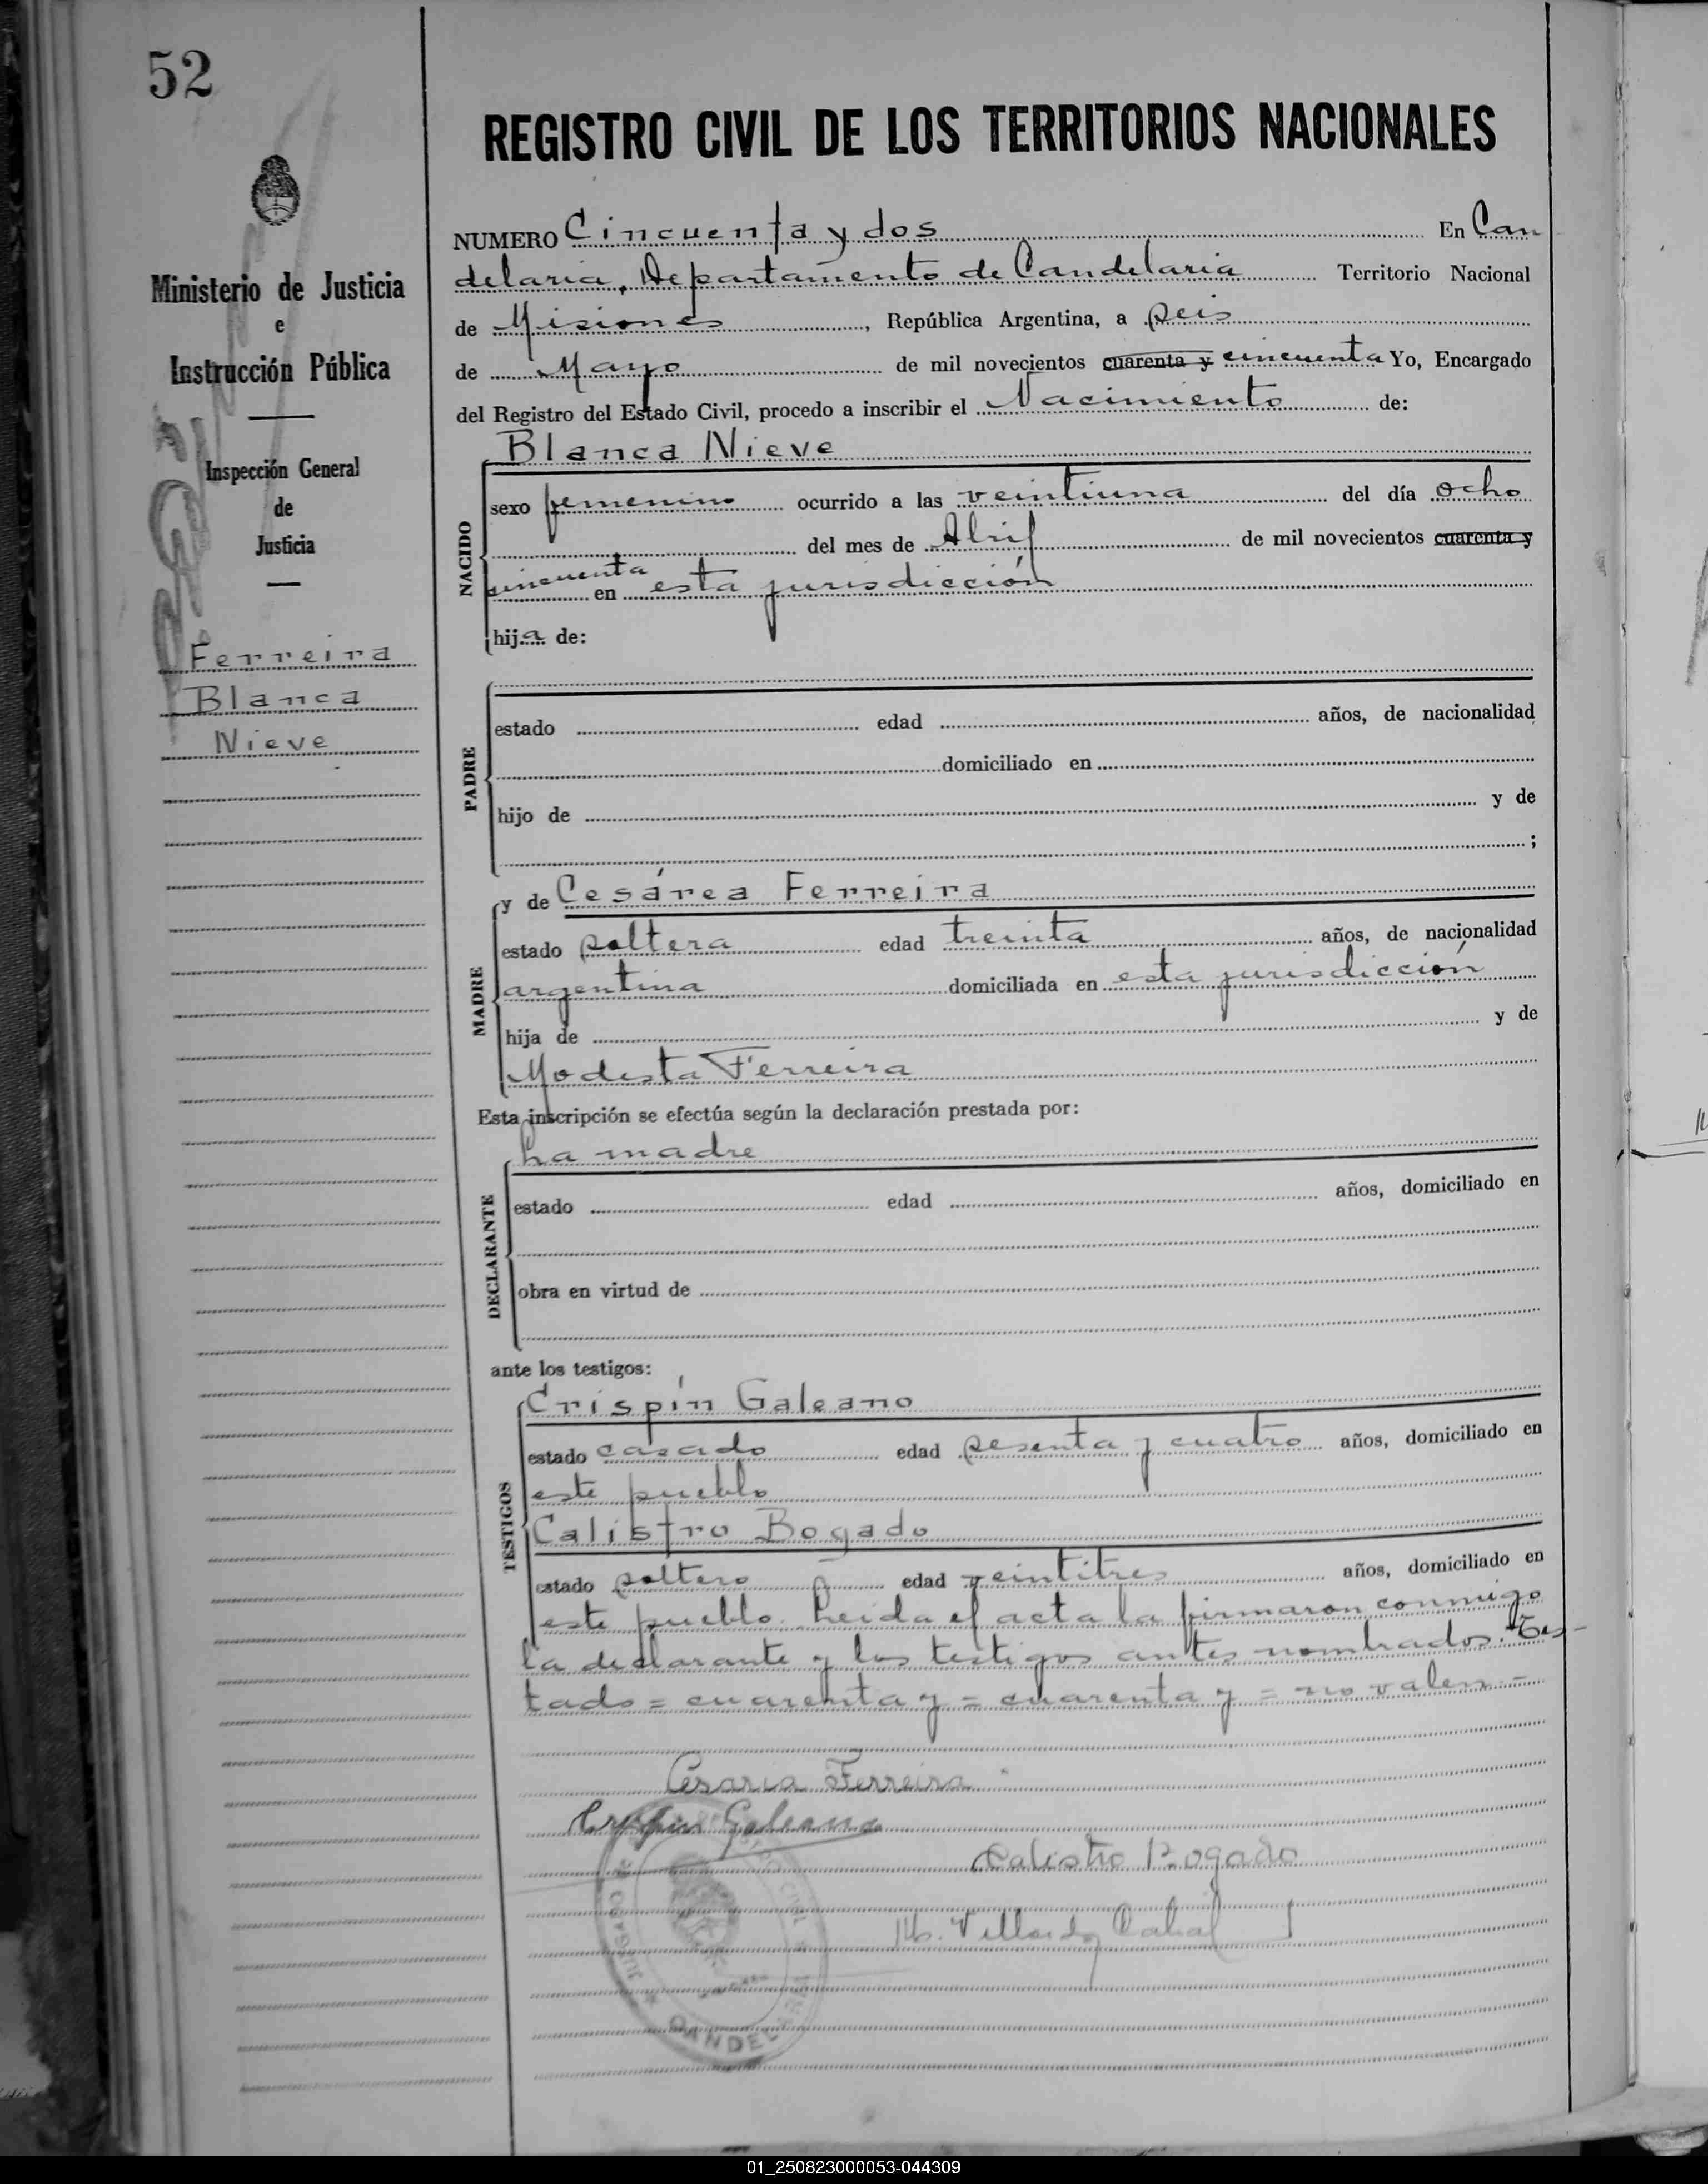 52
REGISTRO CIVIL DE LOS TERRITORIOS NACIONALES
Ministerio de Justicia
e
Instrucción Pública
Inspección General
de
Justicia
Ferreira
Blanca
Nieve
NUMERO Cincuenta y dos En Can
delaria, Departamento de Candelaria Territorio Nacional
de Misiones, República Argentina, a seis
de Mayo de mil novecientos cuarenta y cincuenta Yo, Encargado
del Registro del Estado Civil, procedo a inscribir el Nacimiento de:
Blanca Nieve
NACIDO
sexo femenino ocurrido a las veintiuna del día ocho
del mes de Abril de mil novecientos cuarenta y
cincuenta en esta jurisdicción
hija de:
PADRE
estado edad años, de nacionalidad
domiciliado en
hijo de y de
;
MADRE
y de Cesárea Ferreira
estado soltera edad treinta años, de nacionalidad
argentina domiciliada en esta jurisdicción
hija de y de
Modesta Ferreira
Esta inscripción se efectúa según la declaración prestada por:
La madre
DECLARANTE
estado edad años, domiciliado en
obra en virtud de
ante los testigos:
TESTIGOS
Crispín Galeano
estado casado edad sesenta y cuatro años, domiciliado en
este pueblo
Calistro Bogado
estado soltero edad veintitres años, domiciliado en
este pueblo. Leida el acta la firmaron conmigo
la declarante y los testigos antes nombrados. Tes-
tado = cuarenta y = cuarenta y = no valen =
Cesarea Ferreira
Crispin Galeano
Calistro Bogado
CANDEL
01_250823000053-044309